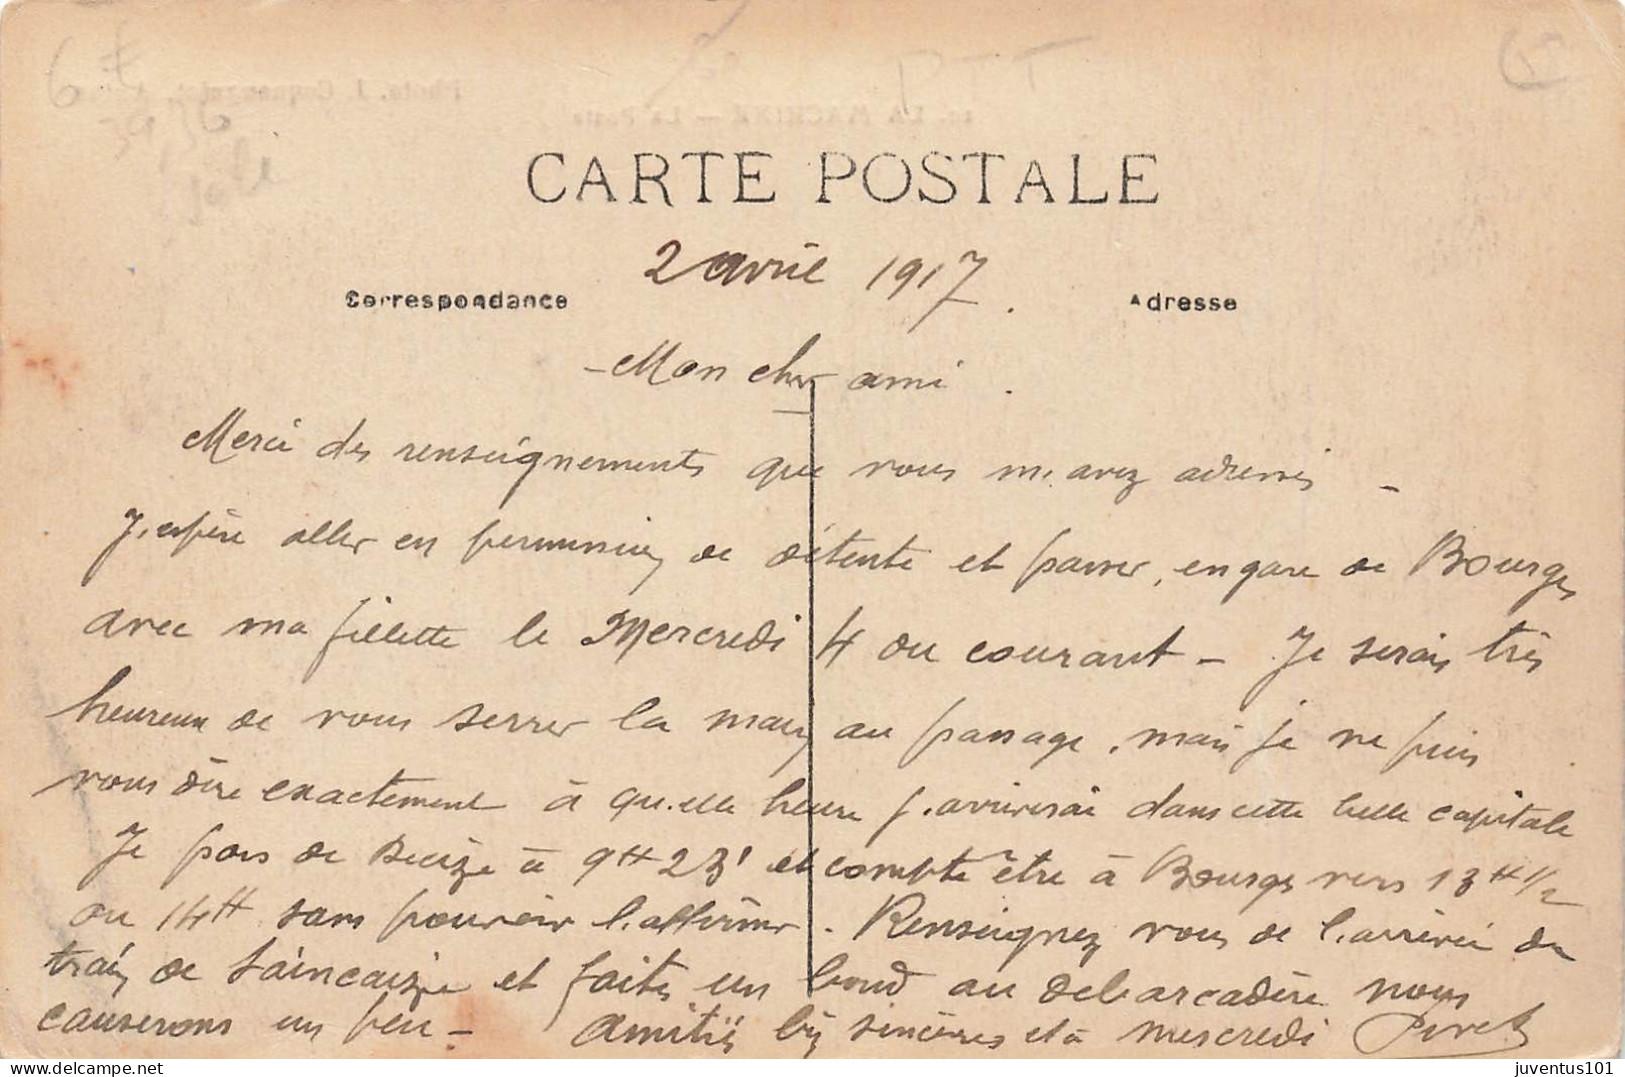 6 F
PTT
CARTE POSTALE
2 avril 1917.
Correspondance
Adresse
Mon cher ami.
Merci des renseignements que vous m'avez adressés -
J'espère aller en permission de détente et passer, en gare de Bourges
avec ma fillette le Mercredi 4 du courant - Je serais très
heureux de vous serrer la main au passage, mais je ne puis
vous dire exactement à quelle heure j'arriverai dans cette belle capitale
Je pars de Decize à 9H23' et compte être à Bourges vers 13H1/2
ou 14H sans pouvoir l'affirmer. Renseignez vous de l'arrivée du
train de Saincaize et faites un bond au debarcadère nous
causerons un peu - Amitiés bien sincères et à mercredi
juventus101